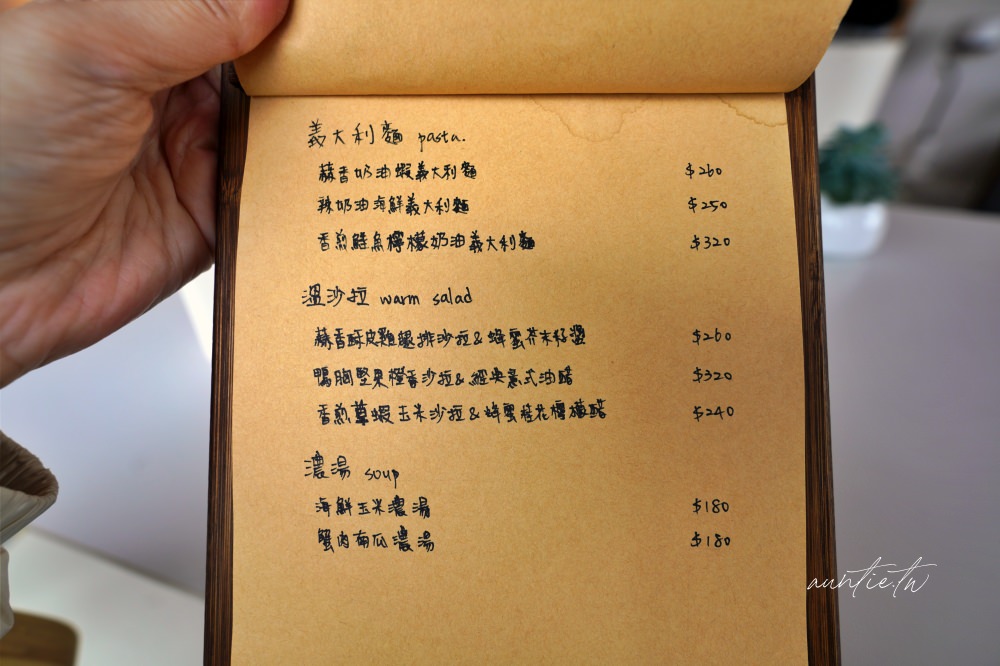 義大利麵 pasta.
蒜香奶油蝦義大利麵 $260
辣奶油海鮮義大利麵 $250
香煎鮭魚檸檬奶油義大利麵 $320
溫沙拉 warm salad
蒜香酥皮雞腿排沙拉&蜂蜜芥末籽醬 $260
鴨胸堅果橙香沙拉&經典意式油醋 $320
香煎草蝦玉米沙拉&蜂蜜桂花檸檬醋 $240
濃湯 soup
海鮮玉米濃湯 $180
蟹肉南瓜濃湯 $180
auntie.tw